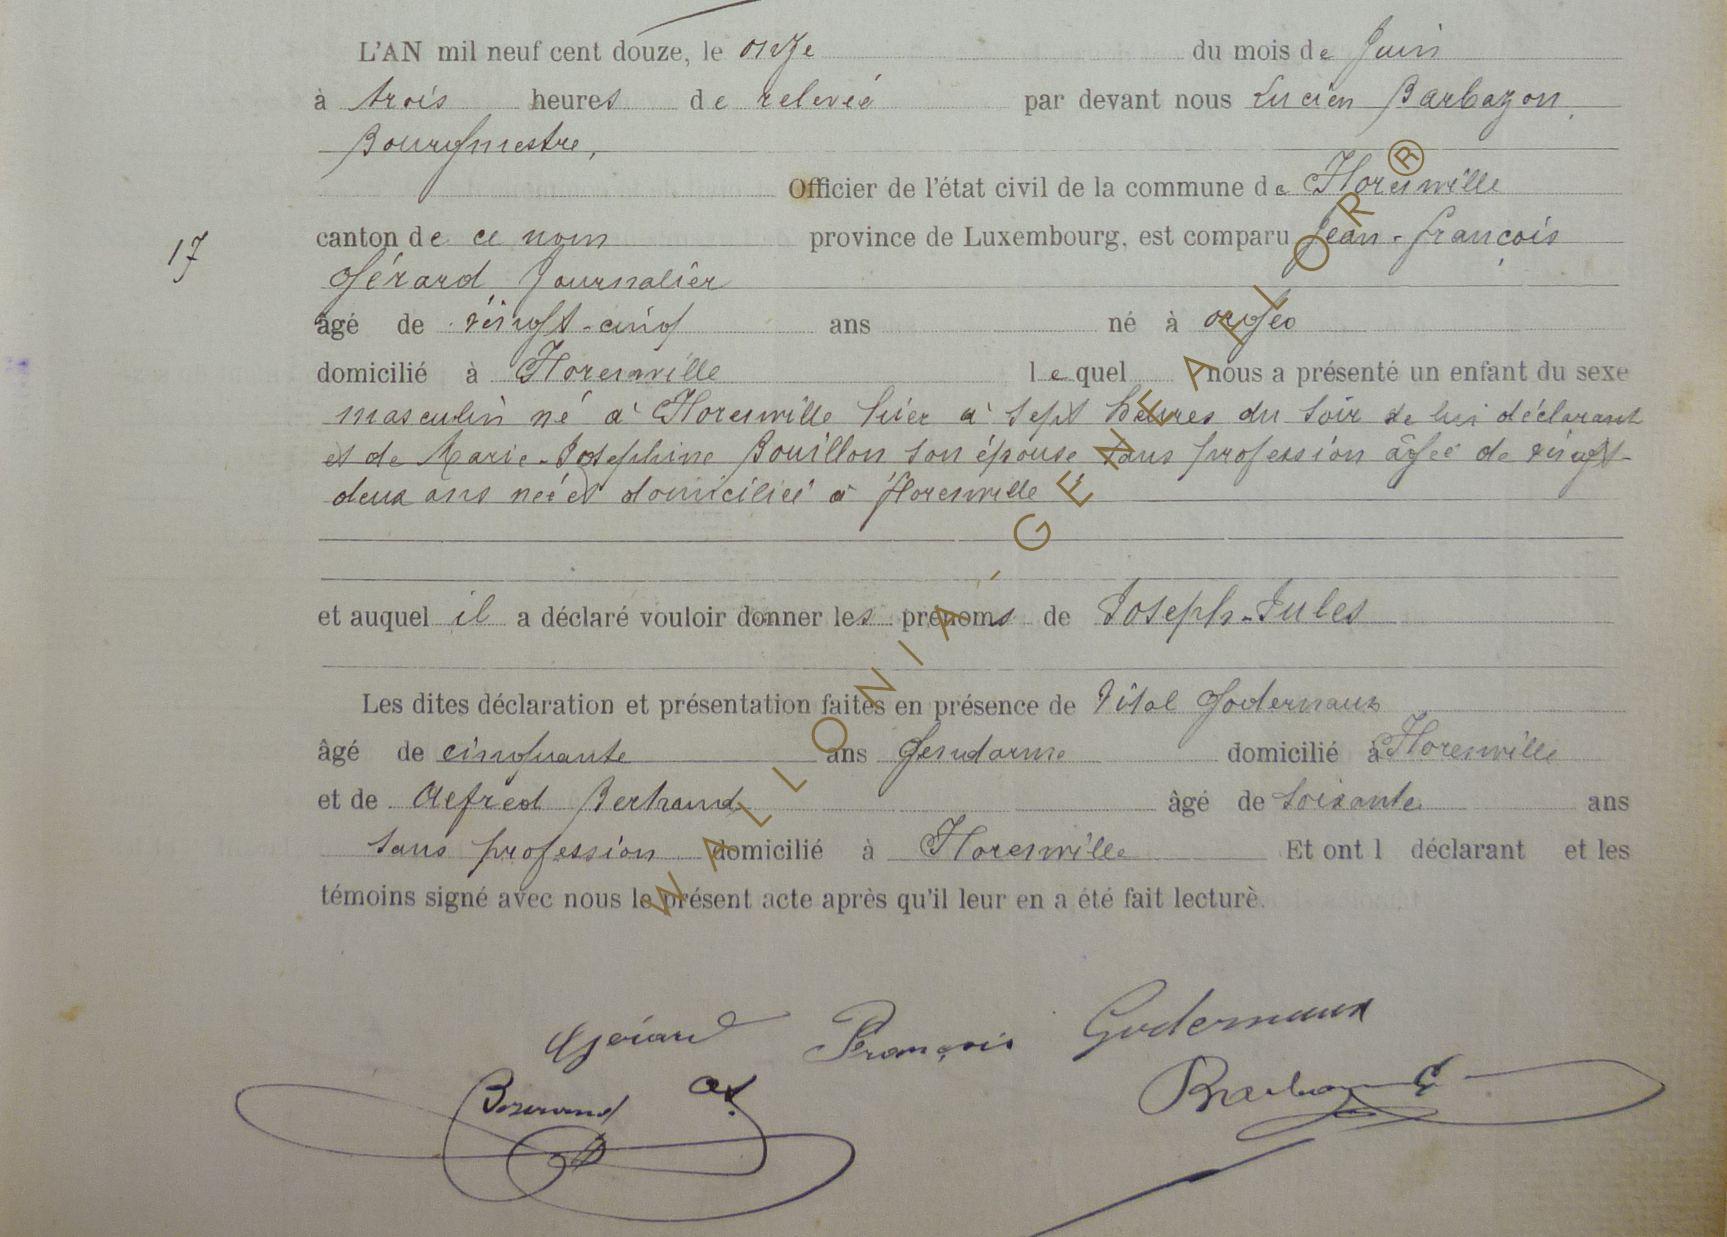 L'AN mil neuf cent douze, le onze du mois de Juin
à trois heures de relevée par devant nous Lucien Barbazon,
Bourgmestre,
Officier de l'état civil de la commune de Florenville
17 canton de ce nom province de Luxembourg, est comparu Jean-François
Gérard Journalier
âgé de vingt-cinq ans né à Orgeo
domicilié à Florenville lequel nous a présenté un enfant du sexe
masculin né à Florenville hier à sept heures du soir de lui déclarant
et de Marie-Joséphine Bouillon, son épouse sans profession âgée de vingt-
deux ans née et domiciliée à Florenville
et auquel il a déclaré vouloir donner les prénoms de Joseph-Jules
Les dites déclaration et présentation faites en présence de Vital Godernaux
âgé de cinquante ans Gendarme domicilié à Florenville
et de Alfred Bertrand âgé de soixante ans
sans profession domicilié à Florenville Et ont l déclarant et les
témoins signé avec nous le présent acte après qu'il leur en a été fait lecture.
Gérard François Godernaux
WALLONIA-GENEAFLOR®